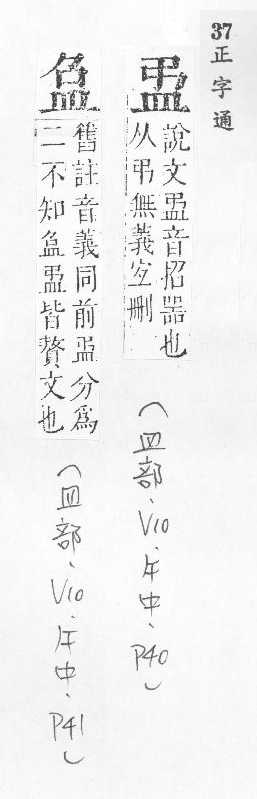 37正字通
盄
說文盄音招器也
从弔無義宐刪
(皿部、V10、午中、P40)
舊註音義同前盄分爲
二不知盄皆贅文也
(皿部、V10、午中、P41)